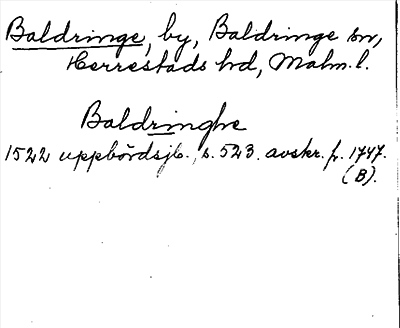 Baldringe, by, Baldringe sn,
Herrestads hd, Malm. l.
Baldringhe
1522 uppbördsjb., s. 523. avskr. fr. 1747.
(B).